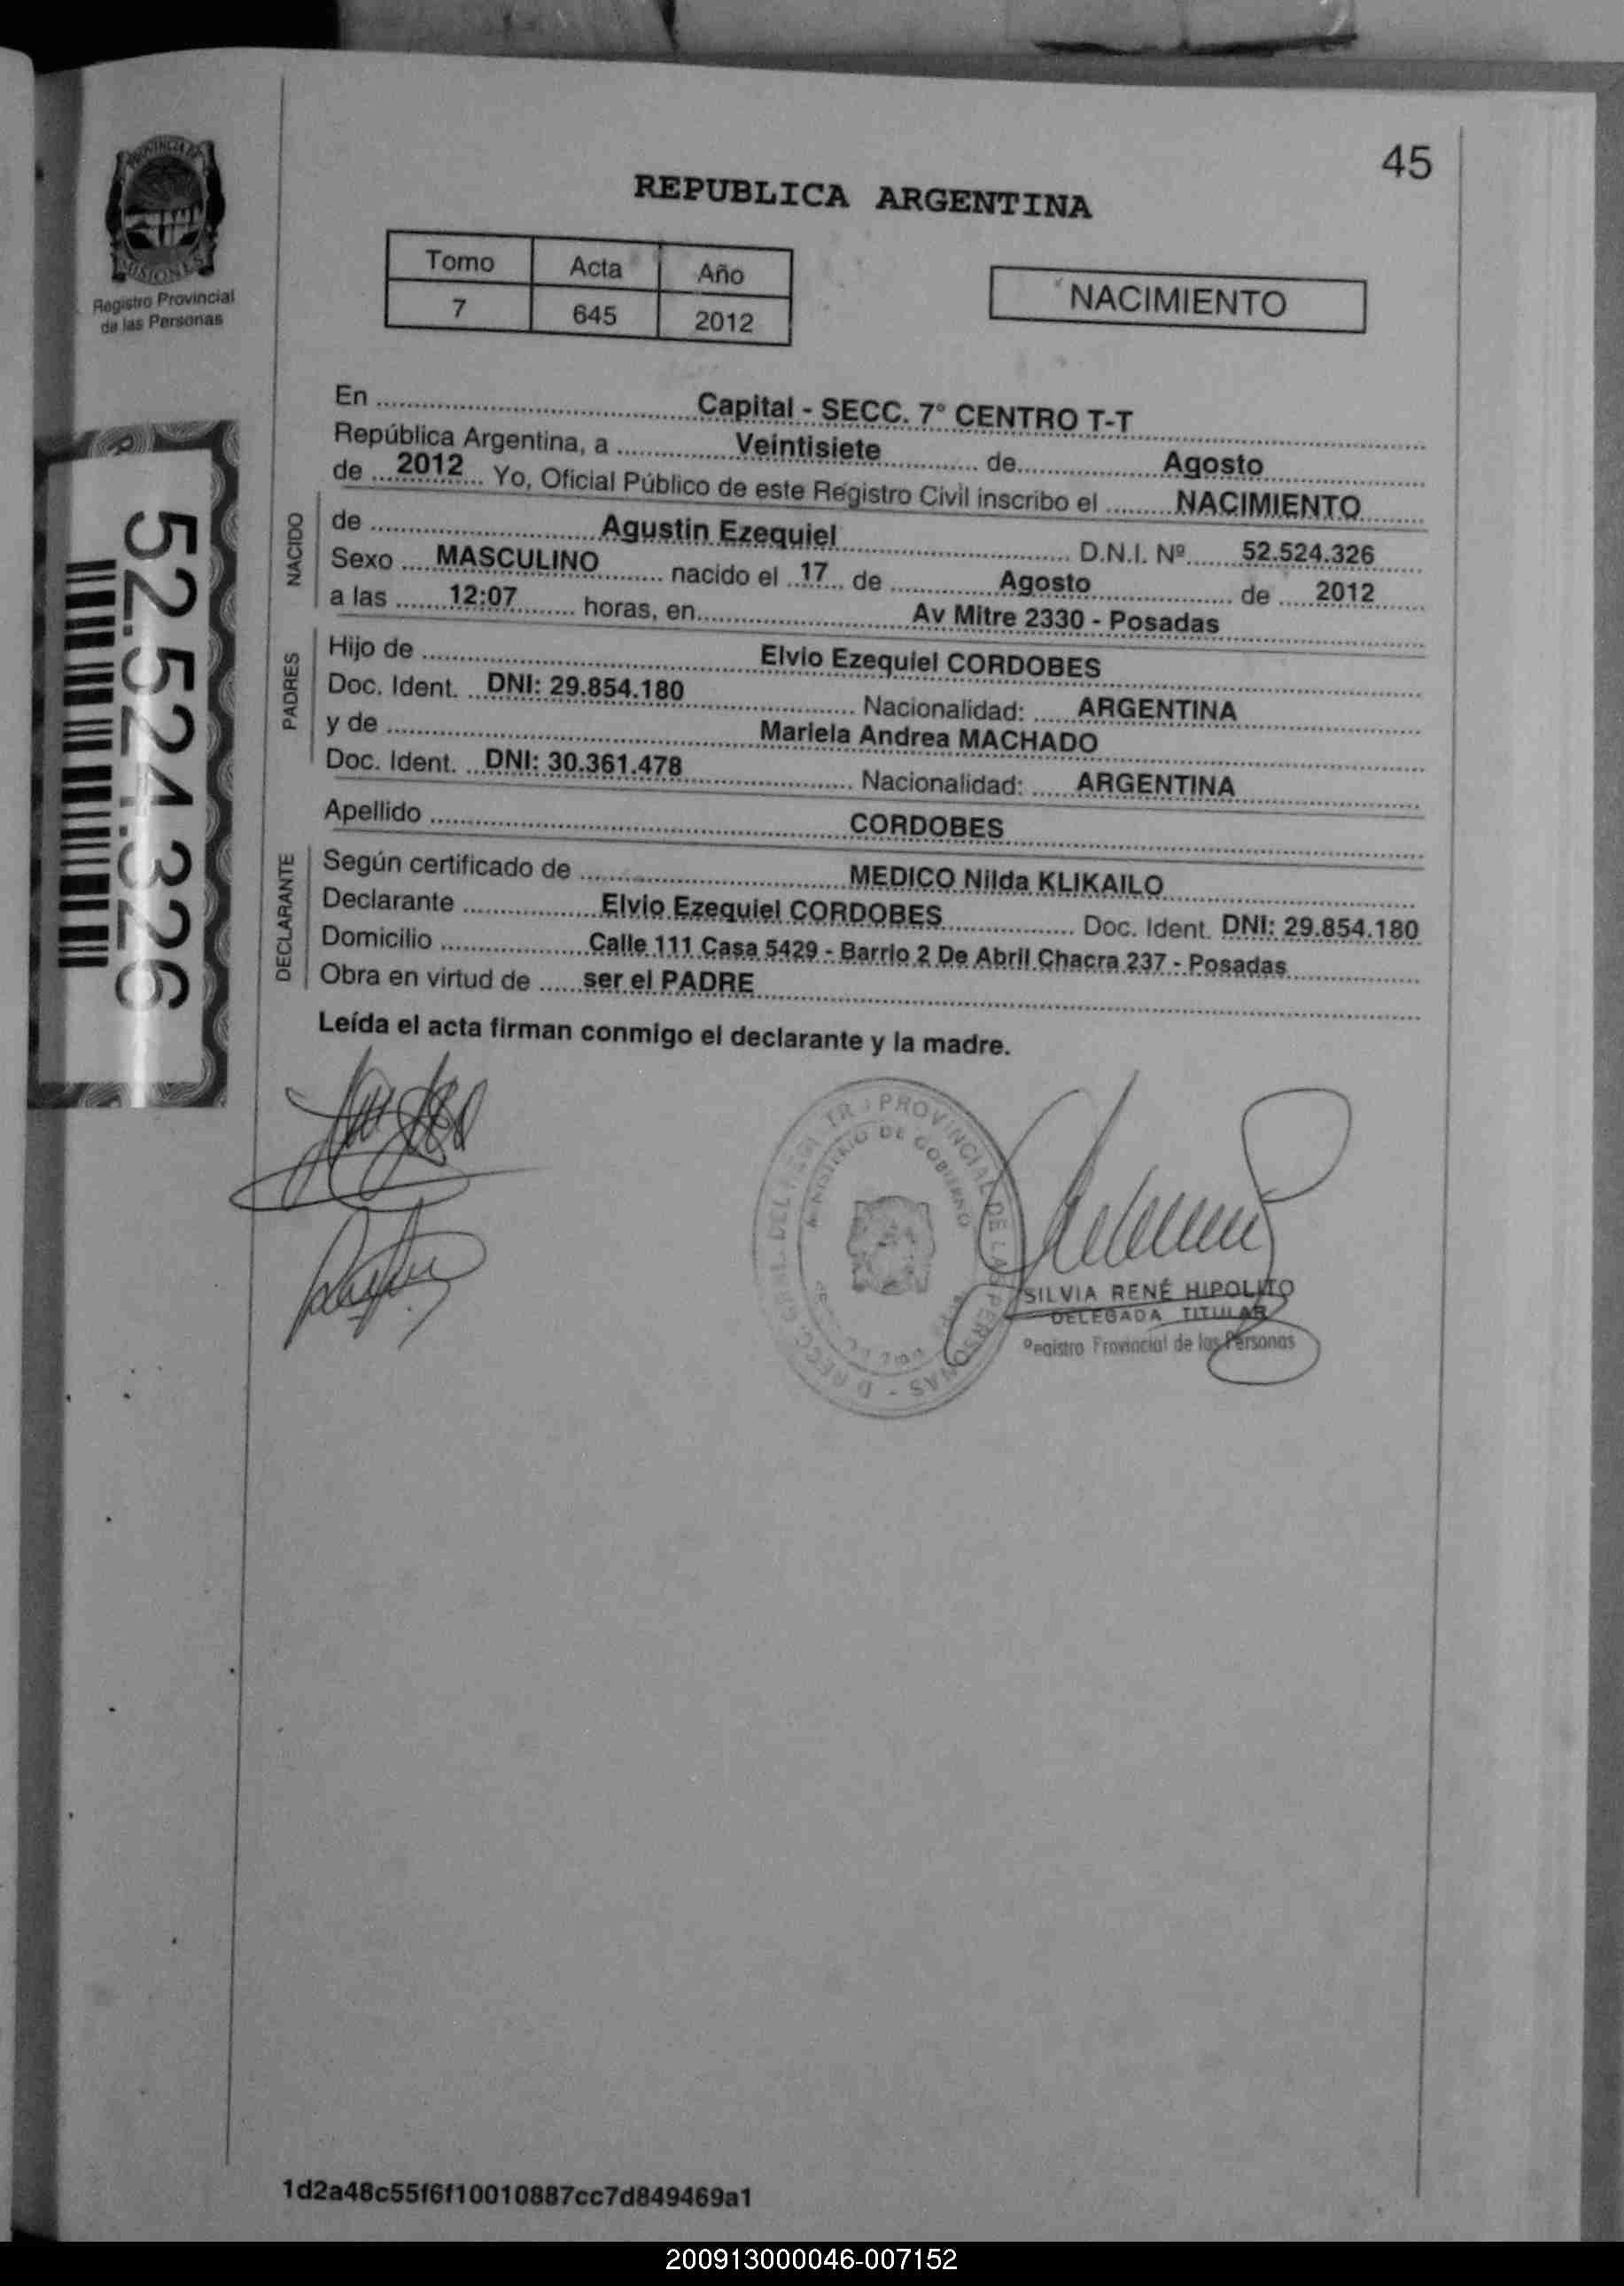 45
PROVINCIA DE
MISIONES
Registro Provincial
de las Personas
REPUBLICA ARGENTINA
Tomo Acta Año
7 645 2012
NACIMIENTO
52.524.326
En Capital - SECC. 7° CENTRO T-T
República Argentina, a Veintisiete de Agosto
de 2012 Yo, Oficial Público de este Registro Civil inscribo el NACIMIENTO
NACIDO
de Agustin Ezequiel D.N.I. Nº 52.524.326
Sexo MASCULINO nacido el 17 de Agosto de 2012
a las 12:07 horas, en Av Mitre 2330 - Posadas
PADRES
Hijo de Elvio Ezequiel CORDOBES
Doc. Ident. DNI: 29.854.180 Nacionalidad: ARGENTINA
y de Mariela Andrea MACHADO
Doc. Ident. DNI: 30.361.478 Nacionalidad: ARGENTINA
Apellido CORDOBES
DECLARANTE
Según certificado de MEDICO Nilda KLIKAILO
Declarante Elvio Ezequiel CORDOBES Doc. Ident. DNI: 29.854.180
Domicilio Calle 111 Casa 5429 - Barrio 2 De Abril Chacra 237 - Posadas
Obra en virtud de ser el PADRE
Leída el acta firman conmigo el declarante y la madre.
PROVINCIAL DE LAS PERSONAS
MINISTERIO DE GOBIERNO
SILVIA RENÉ HIPOLITO
DELEGADA TITULAR
Registro Provincial de las Personas
1d2a48c55f6f10010887cc7d849469a1
200913000046-007152